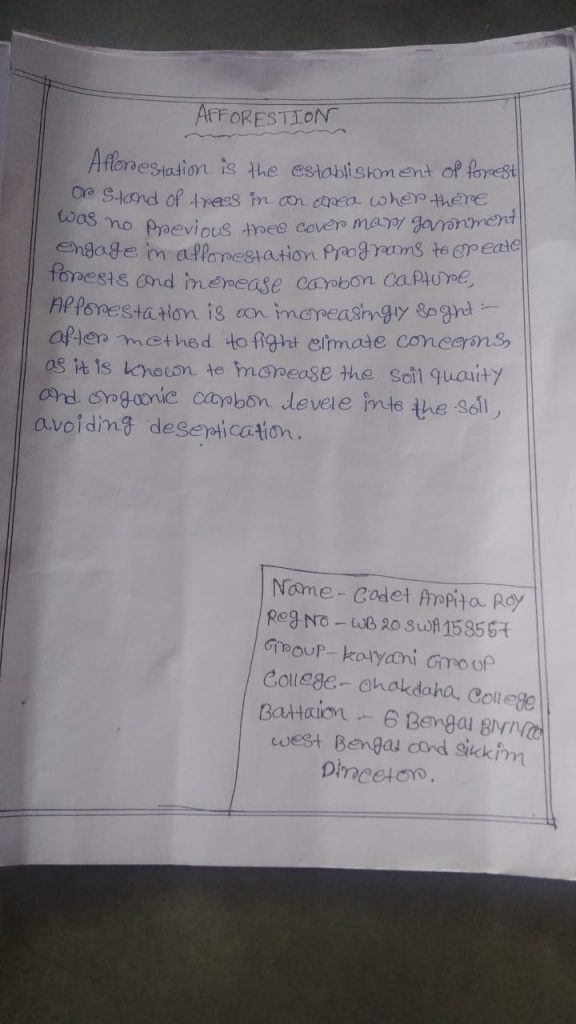 AFFORESTION
Afforestation is the establisment of forest
or stand of trees in an area wher there
was no previous tree cover many govronment
engage in afforestation Programs to create
forests and increase carbon capture,
Afforestation is an increasingly soght :-
after method to fight climate concerns,
as it is known to increase the soil quaity
and organic carbon levele into the soil,
avoiding desertication.
Name - Cadet Arpita Roy
Reg No - WB20SWA158567
Group - Kalyani Group
College - Chakdaha College
Battaion - 6 Bengal BN NCC
West Bengal and Sikkim
Director.